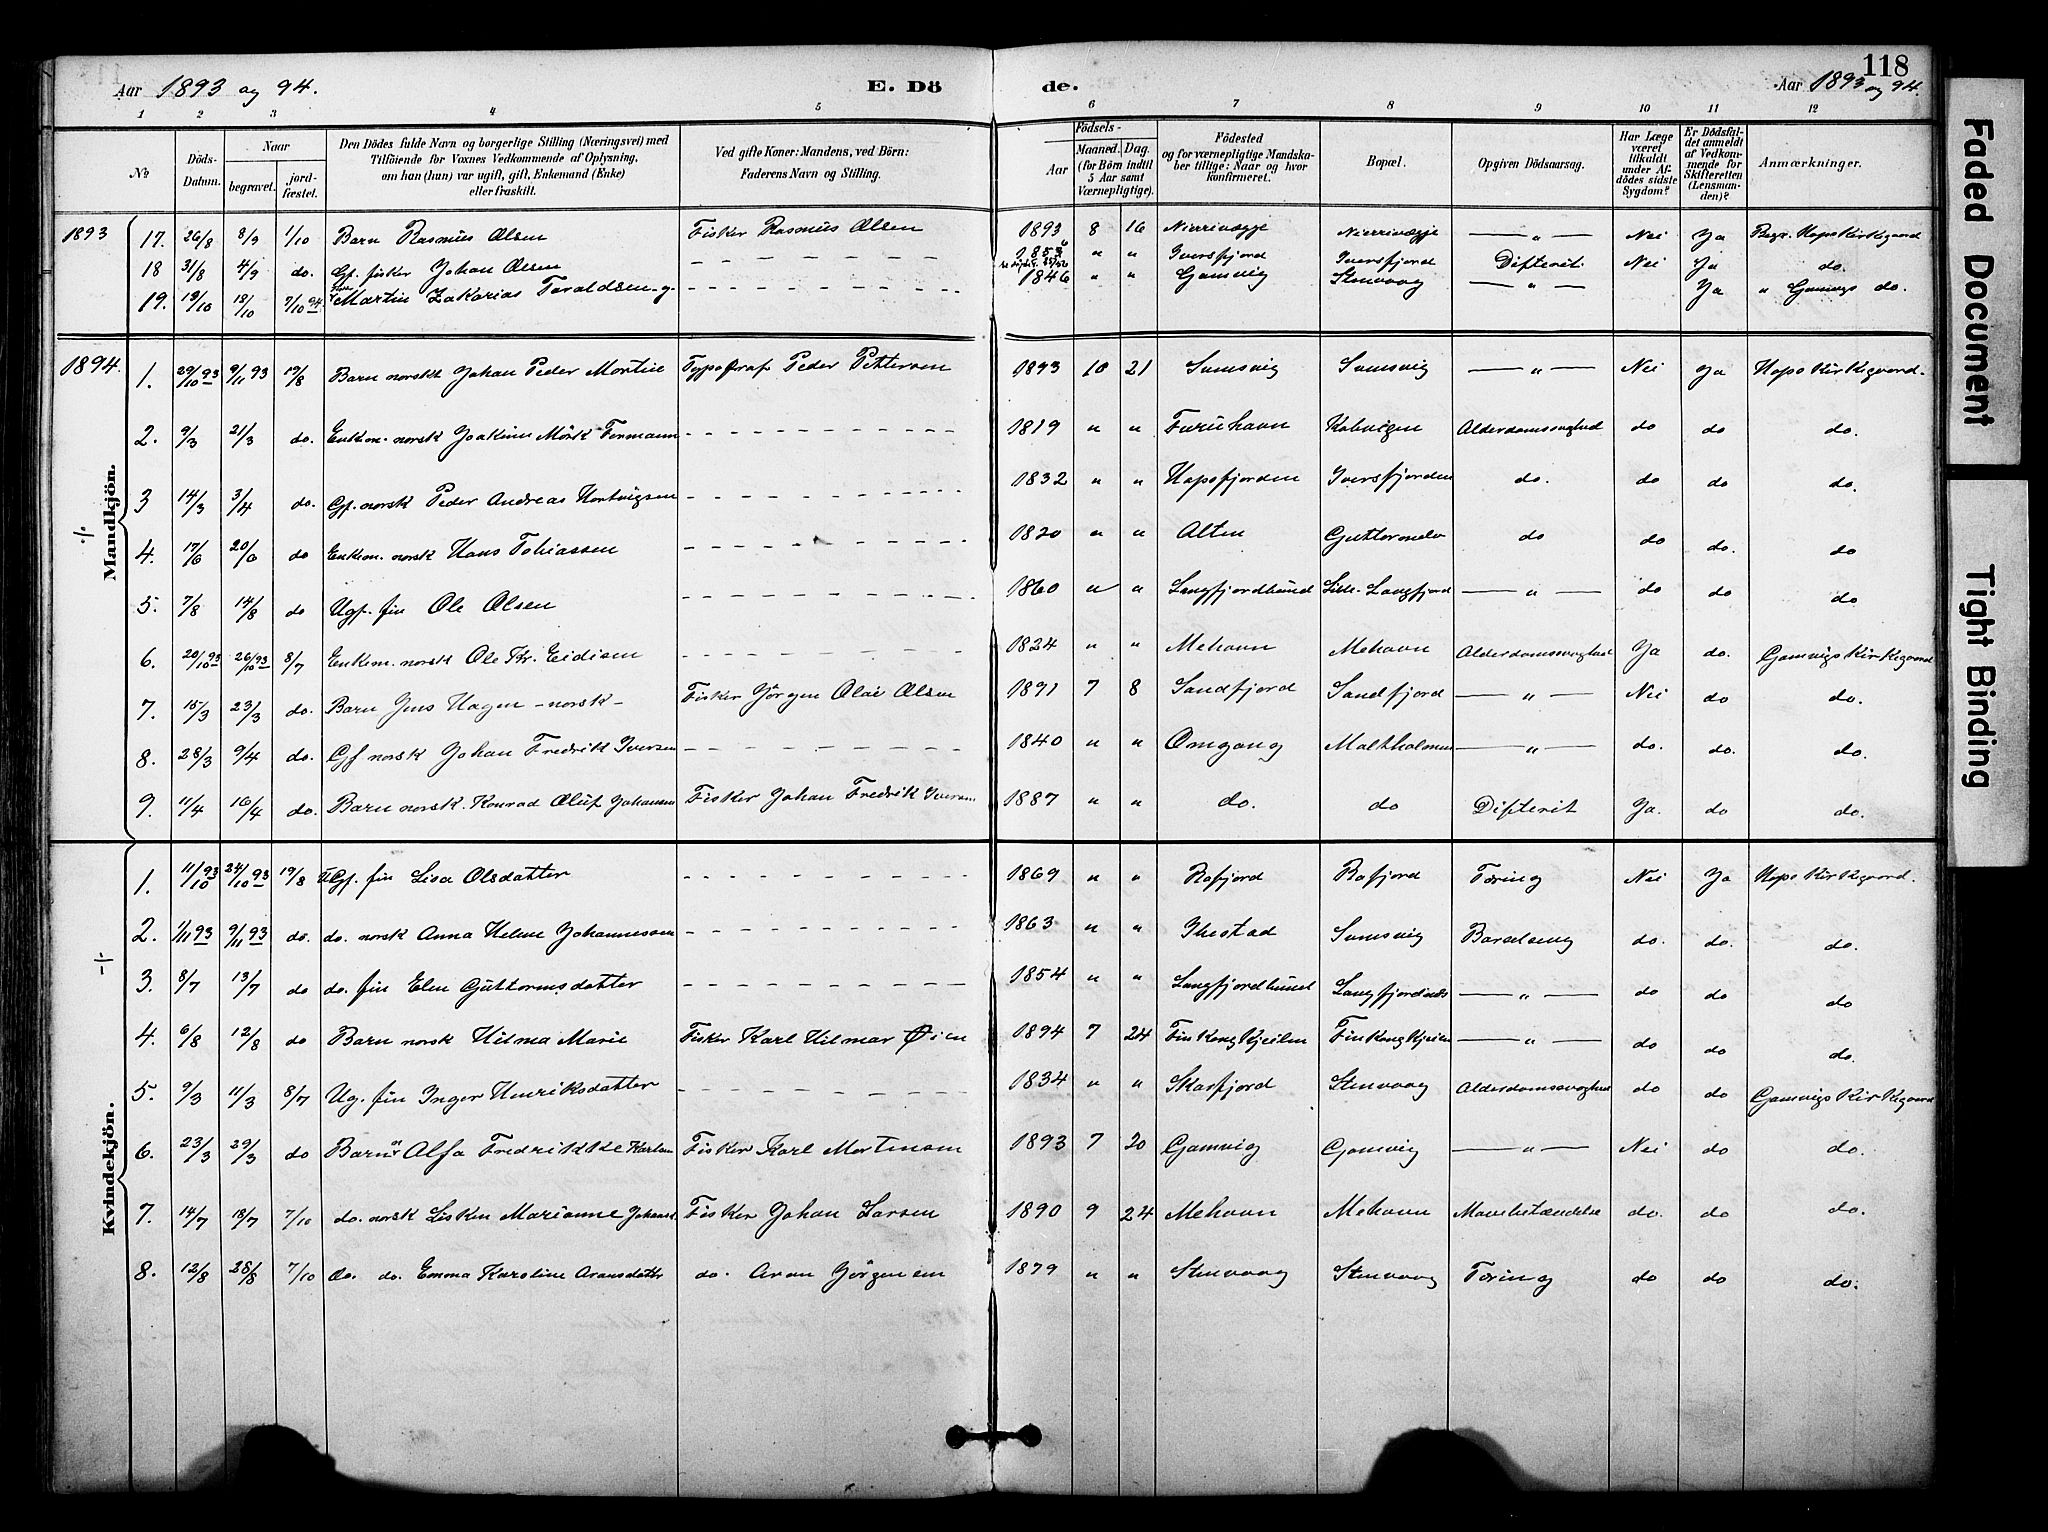 118
Aar 1893 og 94. E. Dö de. Aar 1893 og 94.
1 2 3 4 5 6 7 8 9 10 11 12
No
Döds-Datum.
Naar
begravet. jordfæstet.
Den Dödes fulde Navn og borgerlige Stilling (Næringsvei) med
Tilföiende for Voxnes Vedkommende af Oplysning,
om han (hun) var ugift, gift, Enkemand (Enke)
eller fraskilt.
Ved gifte Koner: Mandens, ved Börn:
Faderens Navn og Stilling.
Födsels-
Aar
Maaned. Dag.
(for Börn indtil 5 Aar samt Værnepligtige).
Födested
og for værnepligtige Mandskaber tillige: Naar og hvor konfirmeret.
Bopæl.
Opgiven Dödsaarsag.
Har Læge været tilkaldt under Afdödes sidste Sygdom?
Er Dödsfaldet anmeldt af Vedkommende for Skifteretten (Lensmanden)?
Anmærkninger.
1893 17. 26/8 8/9 1/10 Barn Rasmus Olsen Fisker Rasmus Olsen 1893 8 16 Nierrivægje Nierrivægje — " — Nei Ja Begr. Hops Kirkegaard
18 31/8 4/9 do. Gf. fisker Johan Olsen " " Iversfjord Iversfjord Difterit Nei Ja do.
19. 13/10 18/10 7/10 94 Martin Zakarias Taraldsen g. 1846 " " Gamvig Stenvaag — " — Ja " Gamvigs do.
Mandkjön.
1894. 1. 29/10 93 9/11 93 19/8 Barn norsk Johan Peder Martin Typograf Peder Pettersen 1893 10 21 Sumsvig Sumsvig — " — Nei Ja Hops Kirkegaard.
2. 9/3 21/3 do. Enkem. norsk Joakim Mörk Formann 1819 " " Furuhavn Kobvigen Alderdomssvaghed do do do.
3 14/3 3/4 do. Gf. norsk Peder Andreas Hartvigsen 1832 " " Hopsfjorden Iversfjorden do. do do do.
4. 17/6 20/6 do Enkem. norsk Hans Tobiassen 1820 " " Alten Guttormelv do do do. do
5. 7/8 14/8 do Ugf. fin Ole Olsen 1860 " " Langfjordbund Lille-Langfjord — " — do do do
6. 20/10 93 26/10 93 8/7 Enkem. norsk Ole Kr. Eidisen 1824 " " Mehavn Mehavn Alderdomssvaghed Ja do. Gamvigs Kirkegaard
7. 15/3 23/3 do. Barn Jens Hagen - norsk - Fisker Jörgen Olai Olsen 1891 7 8 Sandfjord Sandfjord — " — Nei do do.
8. 28/3 9/4 do. Gf norsk Johan Fredrik Iversen 1840 " " Omgang Maltholmen — " — do. do. do.
9. 11/4 16/4 do. Barn norsk. Konrad Oluf Johansen Fisker Johan Fredrik Iversen 1887 " " do. do Difterit Ja. do do.
Kvindekjön.
1. 11/10 93 24/10 93 19/8 Gf. fin Lisa Olsdatter 1869 " " Rafjord Rafjord Tæring Nei Ja Hops Kirkegaard.
2. 1/11 93 9/11 93 do. do. norsk Anna Helene Johannessen 1863 " " Ihestad Sumsvig Barselseng do. do. do.
3. 8/7 13/7 do do. fin Elen Guttormsdatter 1854 " " Langfjordbund Langfjordnes — " — do do do
4. 6/8 12/8 do Barn norsk Hilma Marie Fisker Karl Hilmar Öien 1894 7 24 Finkongkjeilen Finkongkjeilen — " — do do do.
5. 9/3 11/3 8/7 Ug. fin Inger Henriksdatter 1834 " " Skarfjord Stenvaag Alderdomssvaghed do do Gamvigs Kirkegaard
6. 23/3 29/3 do Barn Alfa Fredrikke Karlsen Fisker Karl Mortensen 1893 7 20 Gamvig Gamvig — " — Nei do do.
7. 14/7 18/7 7/10 do. norsk Lisken Marianne Johans. Fisker Johan Larsen 1890 9 24 Mehavn Mehavn Mavebetændelse do. do do.
8. 12/8 28/8 7/10 do. do. Emma Karoline Aronsdatter do. Aron Jörgensen 1879 " " Stenvaag Stenvaag Tæring do do do.
Faded Document
Tight Binding